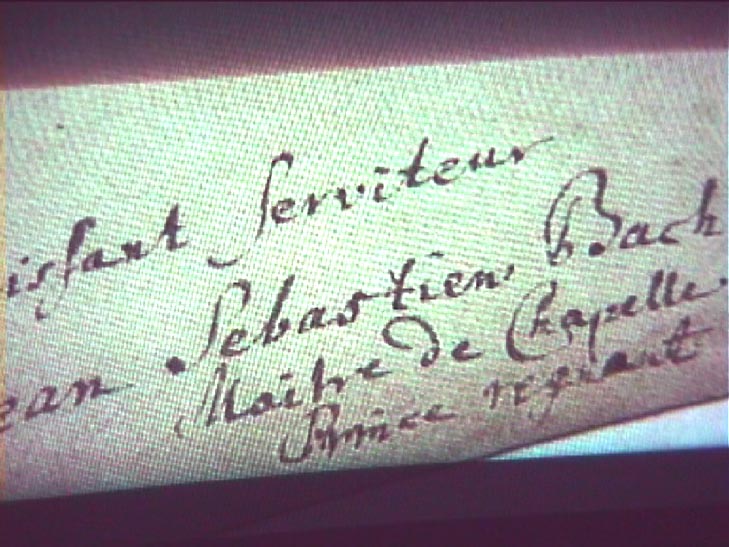 isſant ſerviteur
ean Sebastien Bach
Maitre de Chapelle
Prince regnant